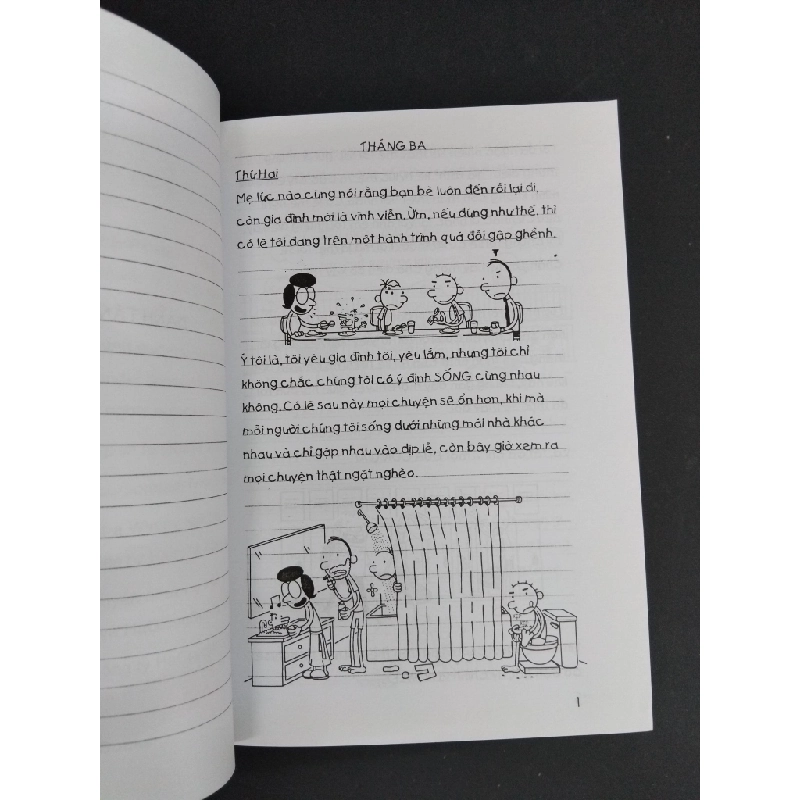 THÁNG BA
Thứ Hai
Mẹ lúc nào cũng nói rằng bạn bè luôn đến rồi lại đi,
còn gia đình mới là vĩnh viễn. Ừm, nếu đúng như thế, thì
có lẽ tôi đang trên một hành trình quá đỗi gập ghềnh.
Ý tôi là, tôi yêu gia đình tôi, yêu lắm, nhưng tôi chỉ
không chắc chúng tôi có ý định SỐNG cùng nhau
không. Có lẽ sau này mọi chuyện sẽ ổn hơn, khi mà
mỗi người chúng tôi sống dưới những mái nhà khác
nhau và chỉ gặp nhau vào dịp lễ, còn bây giờ xem ra
mọi chuyện thật ngặt nghèo.
1